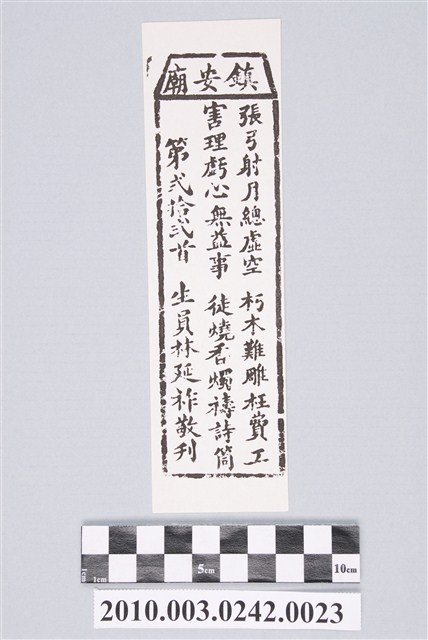 鎮安廟
張弓射月總虛空 朽木難雕枉費工
害理虧心無益事 徒燒香燭禱詩筒
第弍拾弍首 生員林延祚敬刋
1cm 5cm 10cm
2010.003.0242.0023